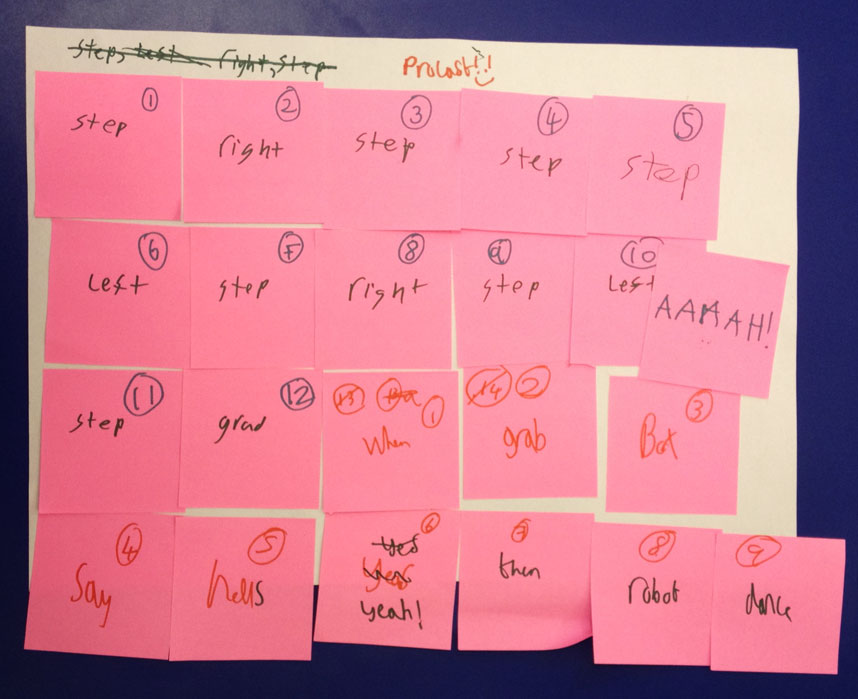 step, left right, step
Procast!!
1
step
2
right
3
step
4
step
5
step
6
Left
7
step
8
right
9
step
10
Left
AAAAH!
11
step
12
grad
13 1
when
14 2
grab
3
Bot
4
Say
5
hells
6
yes
yes
yeah!
7
then
8
robot
9
dance